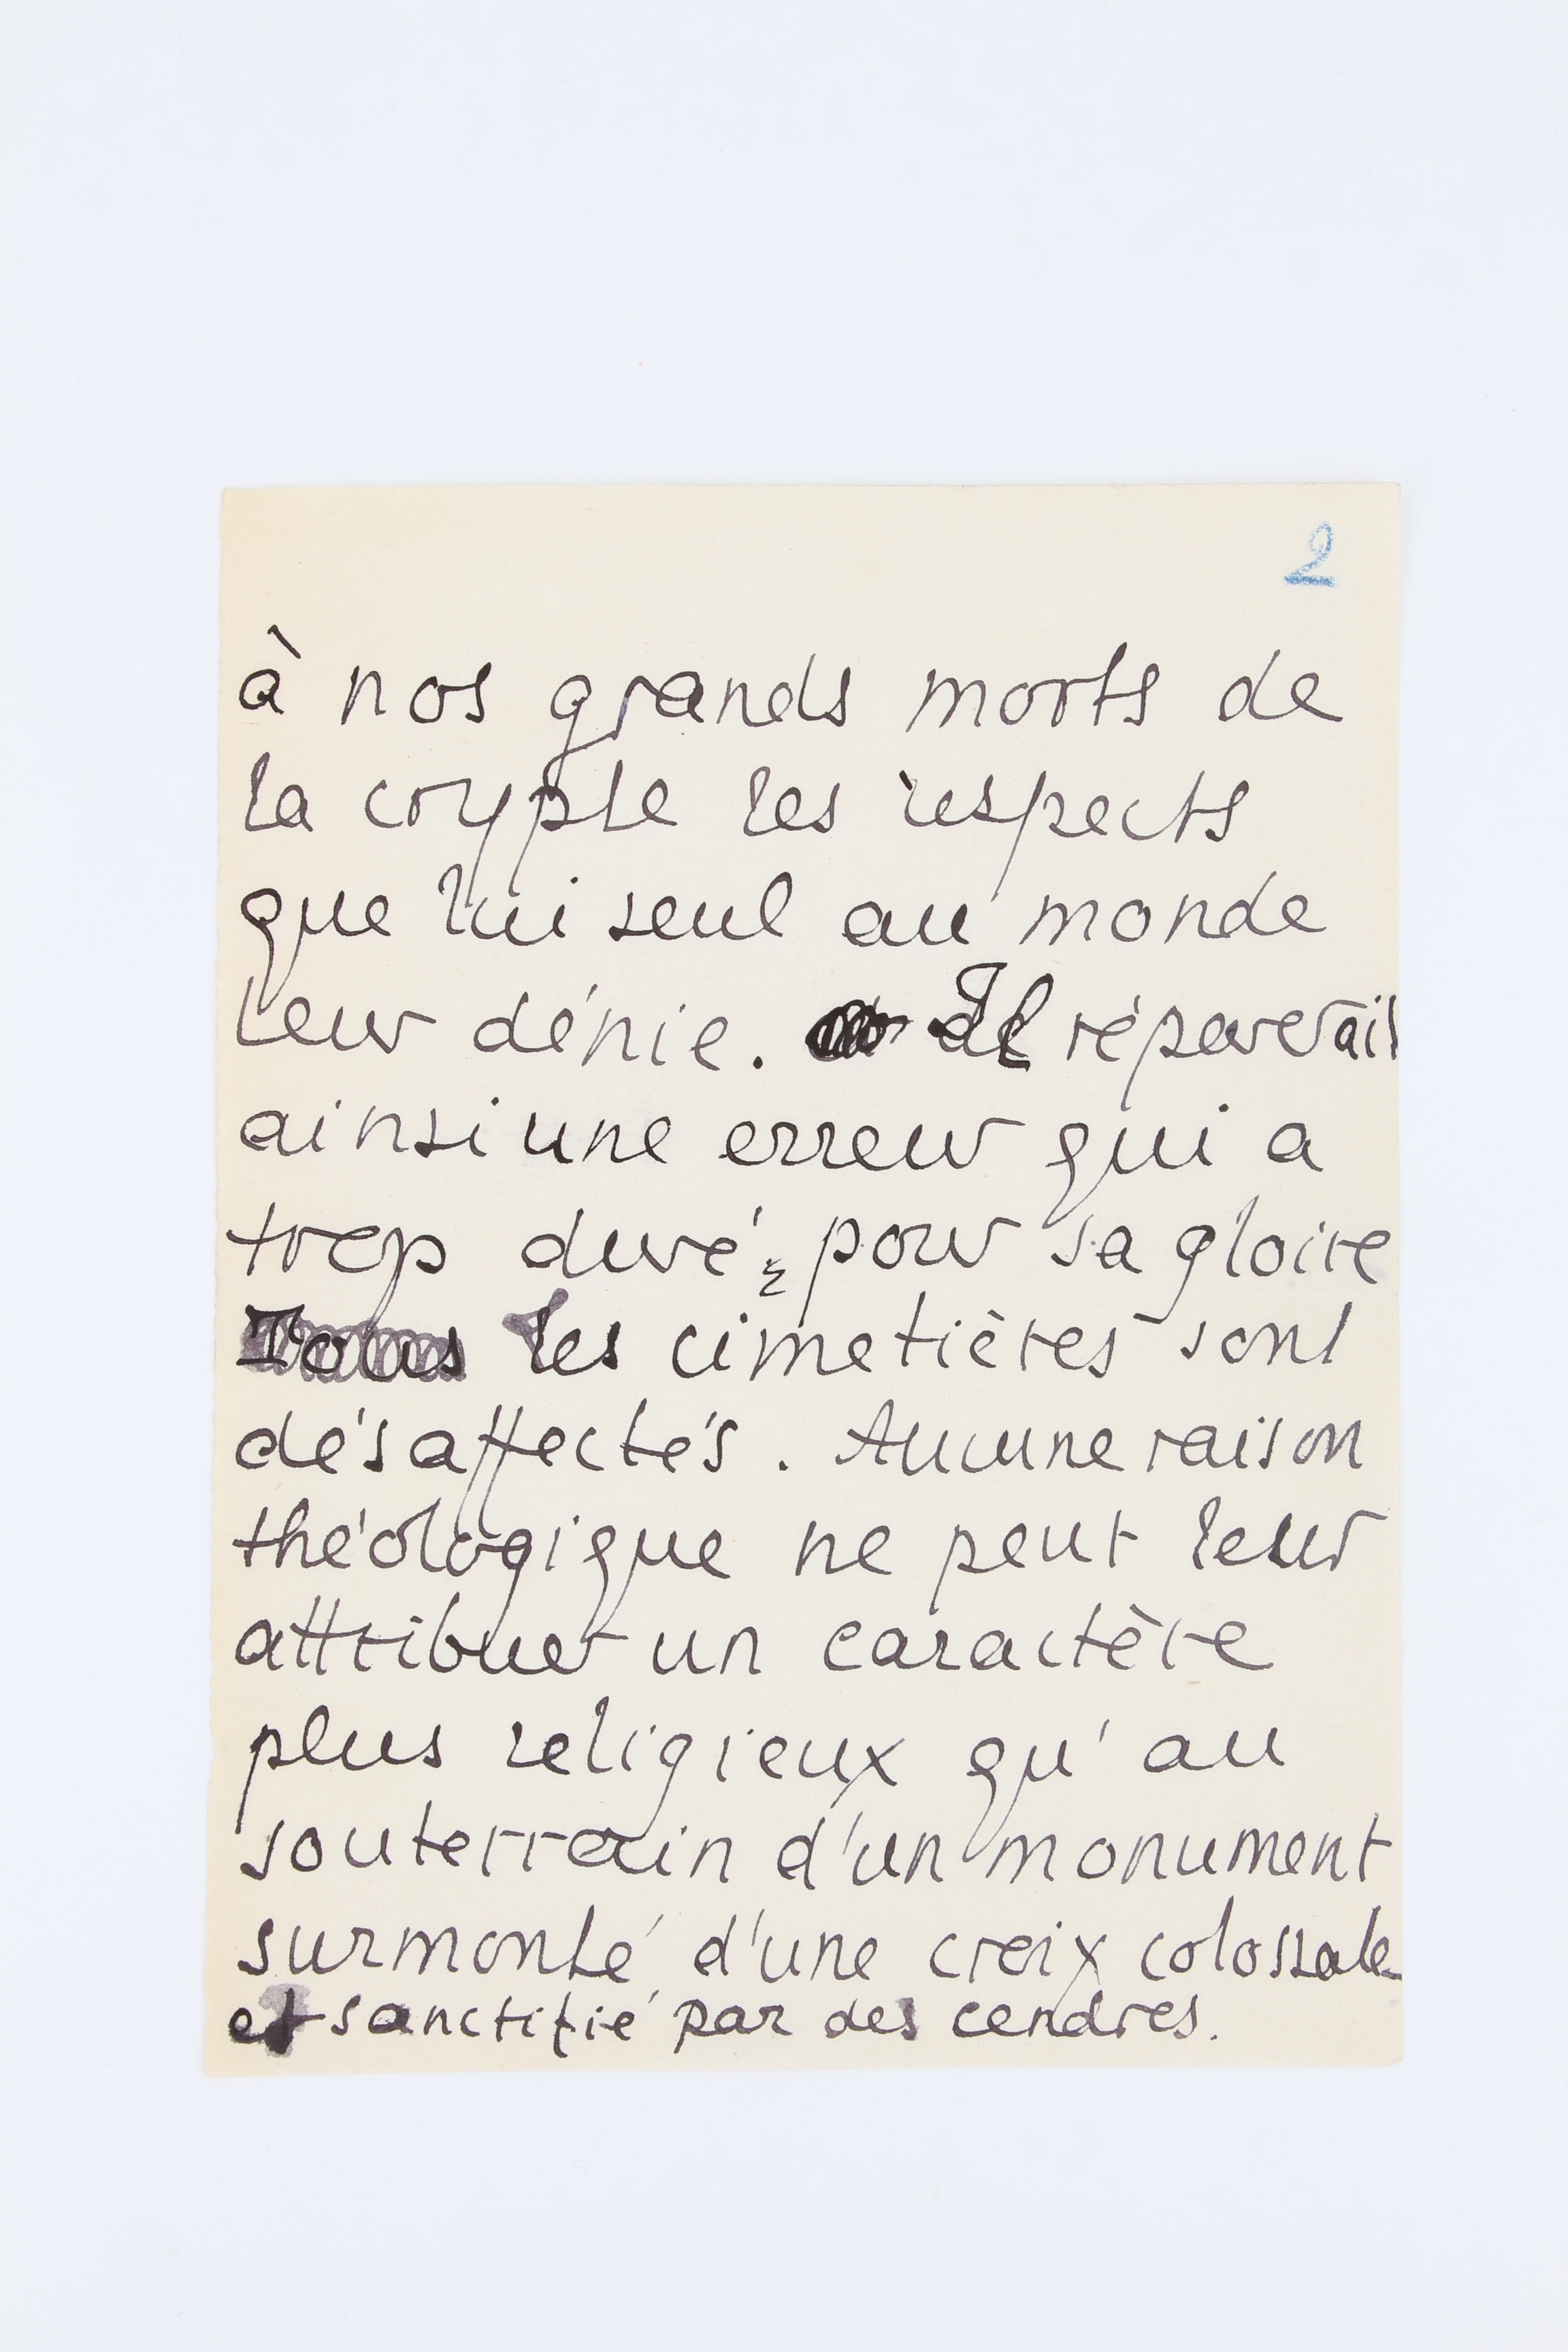 2
à nos grands morts de
la crypte les respects
que lui seul au monde
leur dénie. Il réparerait
ainsi une erreur qui a
trop duré pour sa gloire
Tous les cimetières sont
désaffectés. Aucune raison
théologique ne peut leur
attribuer un caractère
plus religieux qu'au
souterrain d'un monument
surmonté d'une croix colossale
et sanctifié par des cendres.